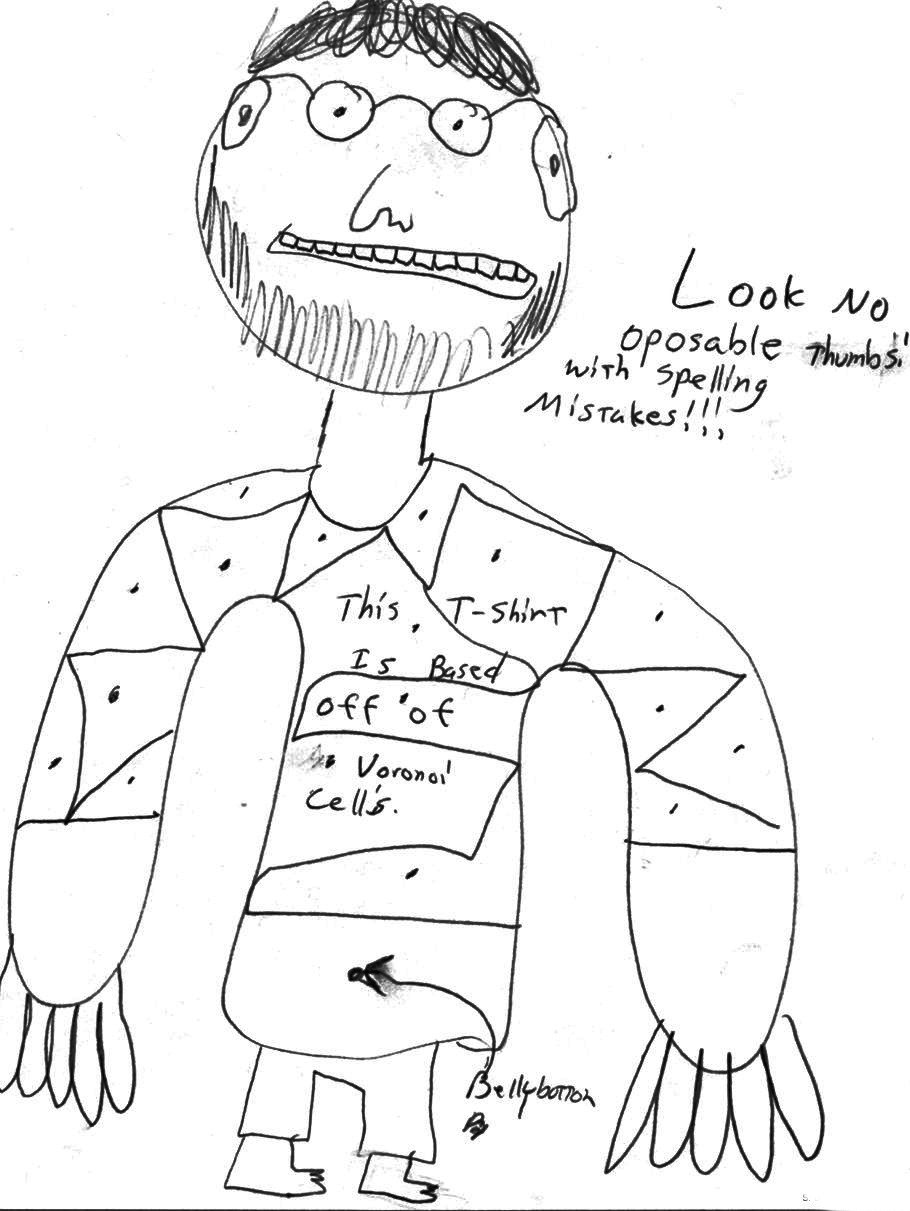 Look No
oposable Thumbs!!
with spelling
Mistakes!!!
This T-Shirt
Is Based
off of
Voronoi
Cell's.
Bellybotton